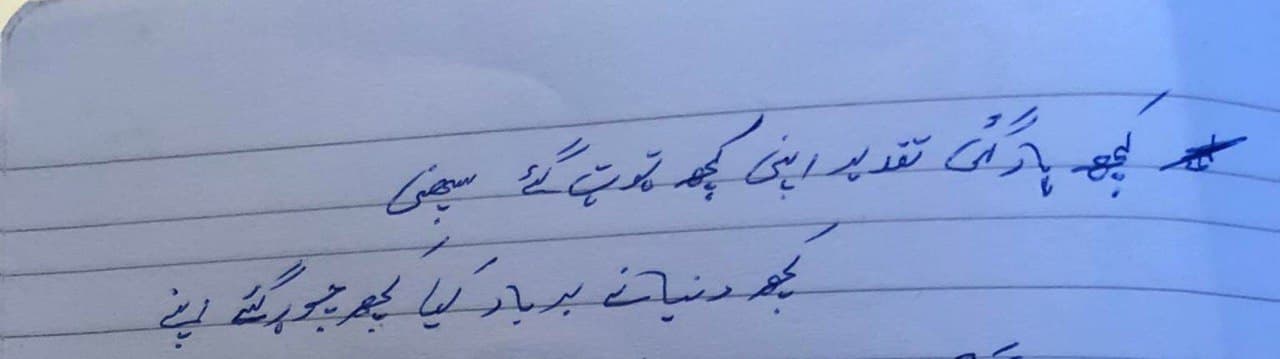 کچھ ہار گئی تقدیر اپنی کچھ ٹوٹ گئے سپنے
کچھ دنیا نے برباد کیا کچھ چھوڑ گئے اپنے